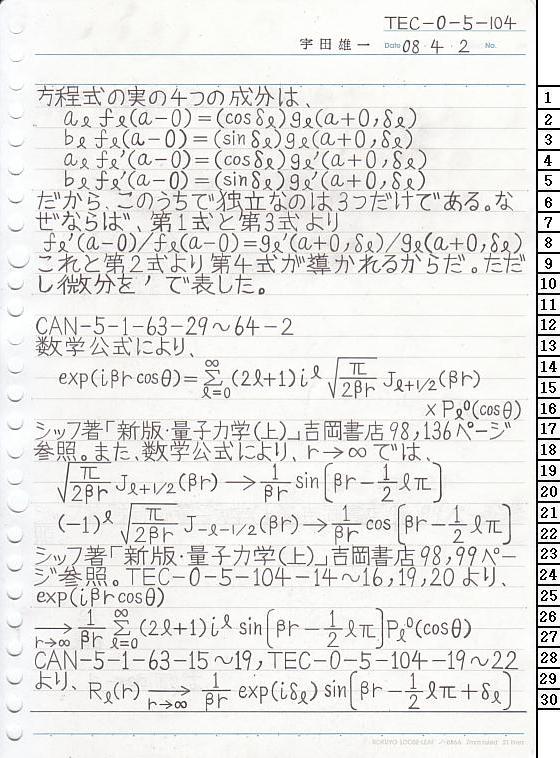 TEC-0-5-104
宇田雄一 Date 08・4・2 No.
方程式の実の4つの成分は、
aℓ fℓ(a-0)=(cosδℓ)gℓ(a+0,δℓ)
bℓ fℓ(a-0)=(sinδℓ)gℓ(a+0,δℓ)
aℓ fℓ'(a-0)=(cosδℓ)gℓ'(a+0,δℓ)
bℓ fℓ'(a-0)=(sinδℓ)gℓ'(a+0,δℓ)
だから、このうちで独立なのは3つだけである。な
ぜならば、第1式と第3式より
fℓ'(a-0)/fℓ(a-0)=gℓ'(a+0,δℓ)/gℓ(a+0,δℓ)
これと第2式より第4式が導かれるからだ。ただ
し微分を ' で表した。
CAN-5-1-63-29~64-2
数学公式により、
exp(iβr cosθ)=Σ_{ℓ=0}^{∞}(2ℓ+1)i^ℓ √(π/2βr) J_{ℓ+1/2}(βr)
×Pℓ⁰(cosθ)
シッフ著「新版・量子力学(上)」吉岡書店98,136ページ
参照。また、数学公式により、r→∞では、
√(π/2βr) J_{ℓ+1/2}(βr) → 1/βr sin[βr-1/2 ℓπ]
(-1)^ℓ √(π/2βr) J_{-ℓ-1/2}(βr) → 1/βr cos[βr-1/2 ℓπ]
シッフ著「新版・量子力学(上)」吉岡書店98,99ペー
ジ参照。TEC-0-5-104-14~16,19,20より、
exp(iβr cosθ)
→_{r→∞} 1/βr Σ_{ℓ=0}^{∞}(2ℓ+1)i^ℓ sin[βr-1/2 ℓπ]Pℓ⁰(cosθ)
CAN-5-1-63-15~19,TEC-0-5-104-19~22
より、Rℓ(r) →_{r→∞} 1/βr exp(iδℓ) sin[βr-1/2 ℓπ+δℓ]
1
2
3
4
5
6
7
8
9
10
11
12
13
14
15
16
17
18
19
20
21
22
23
24
25
26
27
28
29
30